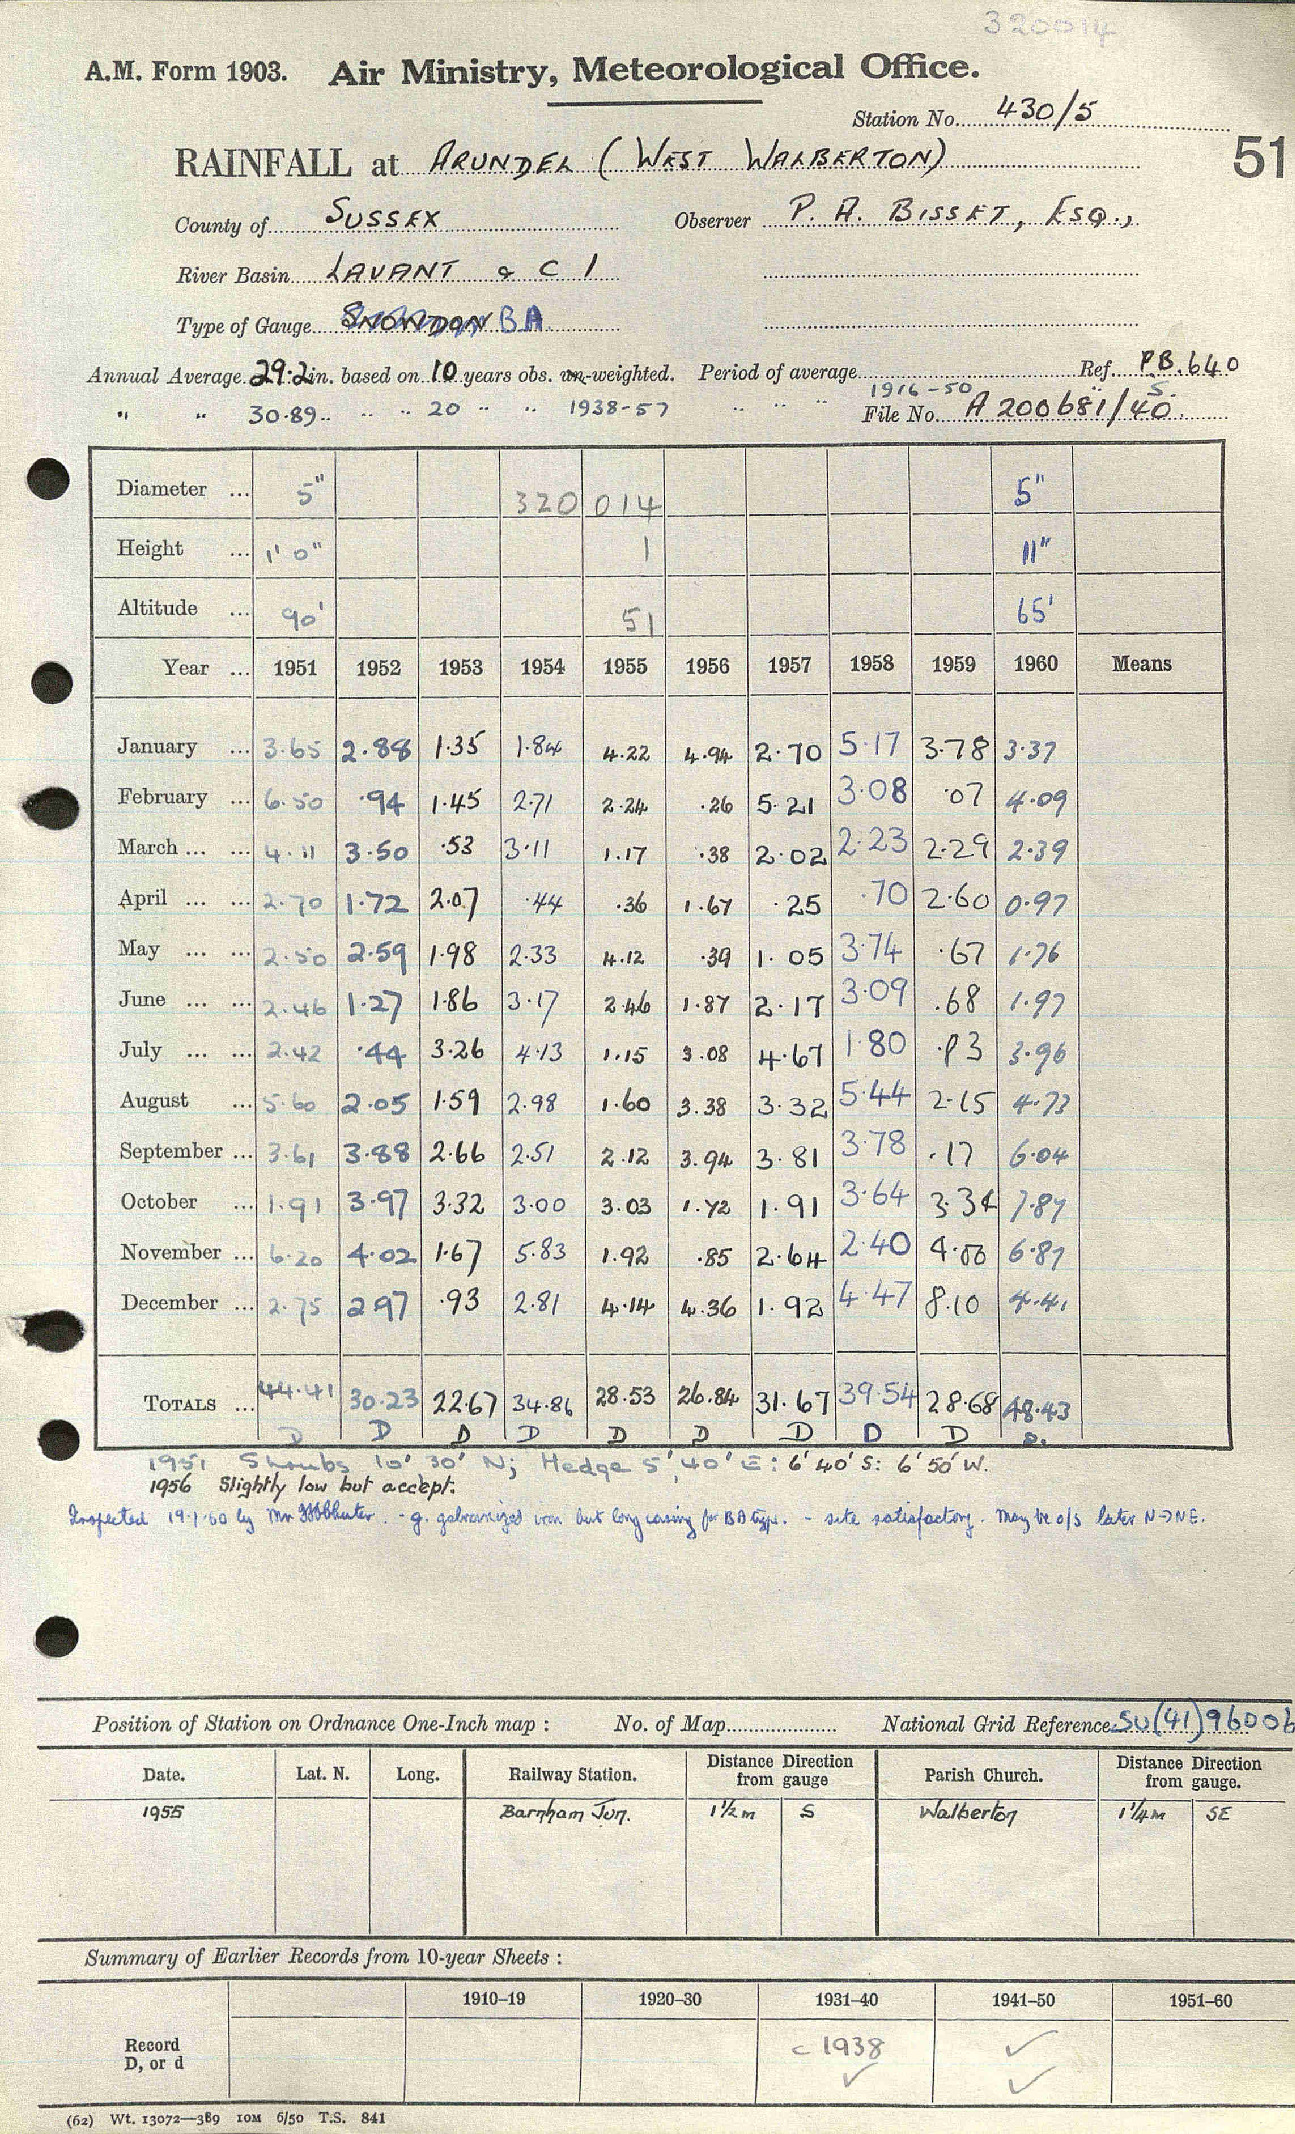 320014
A.M. Form 1903. Air Ministry, Meteorological Office.
Station No. 430/5
51
RAINFALL at ARUNDEL (WEST WALBERTON)
County of SUSSEX Observer P. A. BISSET, ESQ.,
River Basin LAVANT & C 1
Type of Gauge SNOWDON BA
Annual Average 29.2 in. based on 10 years obs. un-weighted. Period of average Ref. P.B. 640
" " 30.89 .. .. .. 20 .. .. 1938-57 .. .. .. 1916-50 File No. A 200681/40 S.
Diameter ... 5" 320 014 5"
Height ... 1' 0" 1 11"
Altitude ... 90' 51 65'
Year ... 1951 1952 1953 1954 1955 1956 1957 1958 1959 1960 Means
January ... 3.65 2.88 1.35 1.84 4.22 4.94 2.70 5.17 3.78 3.37
February ... 6.50 .94 1.45 2.71 2.24 .26 5.21 3.08 .07 4.09
March ... ... 4.11 3.50 .53 3.11 1.17 .38 2.02 2.23 2.29 2.39
April ... ... 2.70 1.72 2.07 .44 .36 1.67 .25 .70 2.60 0.97
May ... ... 2.50 2.59 1.98 2.33 4.12 .39 1.05 3.74 .67 1.76
June ... ... 2.46 1.27 1.86 3.17 2.46 1.87 2.17 3.09 .68 1.97
July ... ... 2.42 .44 3.26 4.13 1.15 3.08 4.67 1.80 .83 3.96
August ... 5.60 2.05 1.59 2.98 1.60 3.38 3.32 5.44 2.15 4.73
September ... 3.61 3.88 2.66 2.51 2.12 3.94 3.81 3.78 .17 6.04
October ... 1.91 3.97 3.32 3.00 3.03 1.72 1.91 3.64 3.34 7.87
November ... 6.20 4.02 1.67 5.83 1.92 .85 2.64 2.40 4.00 6.87
December ... 2.75 2.97 .93 2.81 4.14 4.36 1.92 4.47 8.10 4.41
TOTALS ... 44.41 30.23 22.67 34.86 28.53 26.84 31.67 39.54 28.68 48.43
D D D D D D D D D D.
1951 Shrubs 10' 30' N; Hedge 5', 40' E: 6' 40' S: 6' 50' W.
1956 Slightly low but accept.
Inspected 19.1.60 by Mr . - g. galvanized iron but long casing for BA type. - site satisfactory. May be o/s later N→NE.
Position of Station on Ordnance One-Inch map : No. of Map National Grid Reference SU(41)96006
Date. Lat. N. Long. Railway Station. Distance from gauge Direction Parish Church. Distance from gauge. Direction
1955 Barnham Jun. 1½m S Walberton 1¼m SE
Summary of Earlier Records from 10-year Sheets :
1910–19 1920–30 1931–40 1941–50 1951–60
Record D, or d c 1938 ✓ ✓ ✓
(62) Wt. 13072—389 10M 6/50 T.S. 841